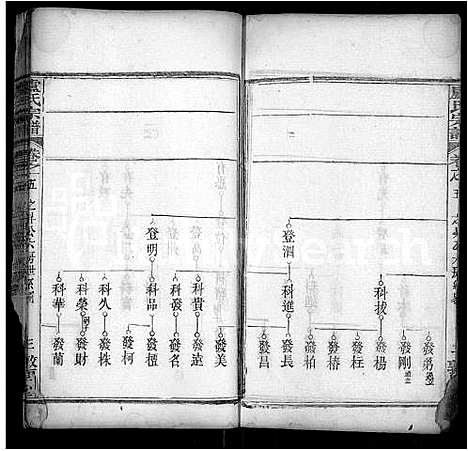 盧氏宗譜
卷之五
登酒
科拔
科進
發剛
發楊
發柱
發椿
發柏
發長
發昌
盧氏宗譜
卷之五
登明
科貴
科發
科品
科久
科榮
科華
發美
發遠
發名
發榧
發柯
發株
發財
發蘭